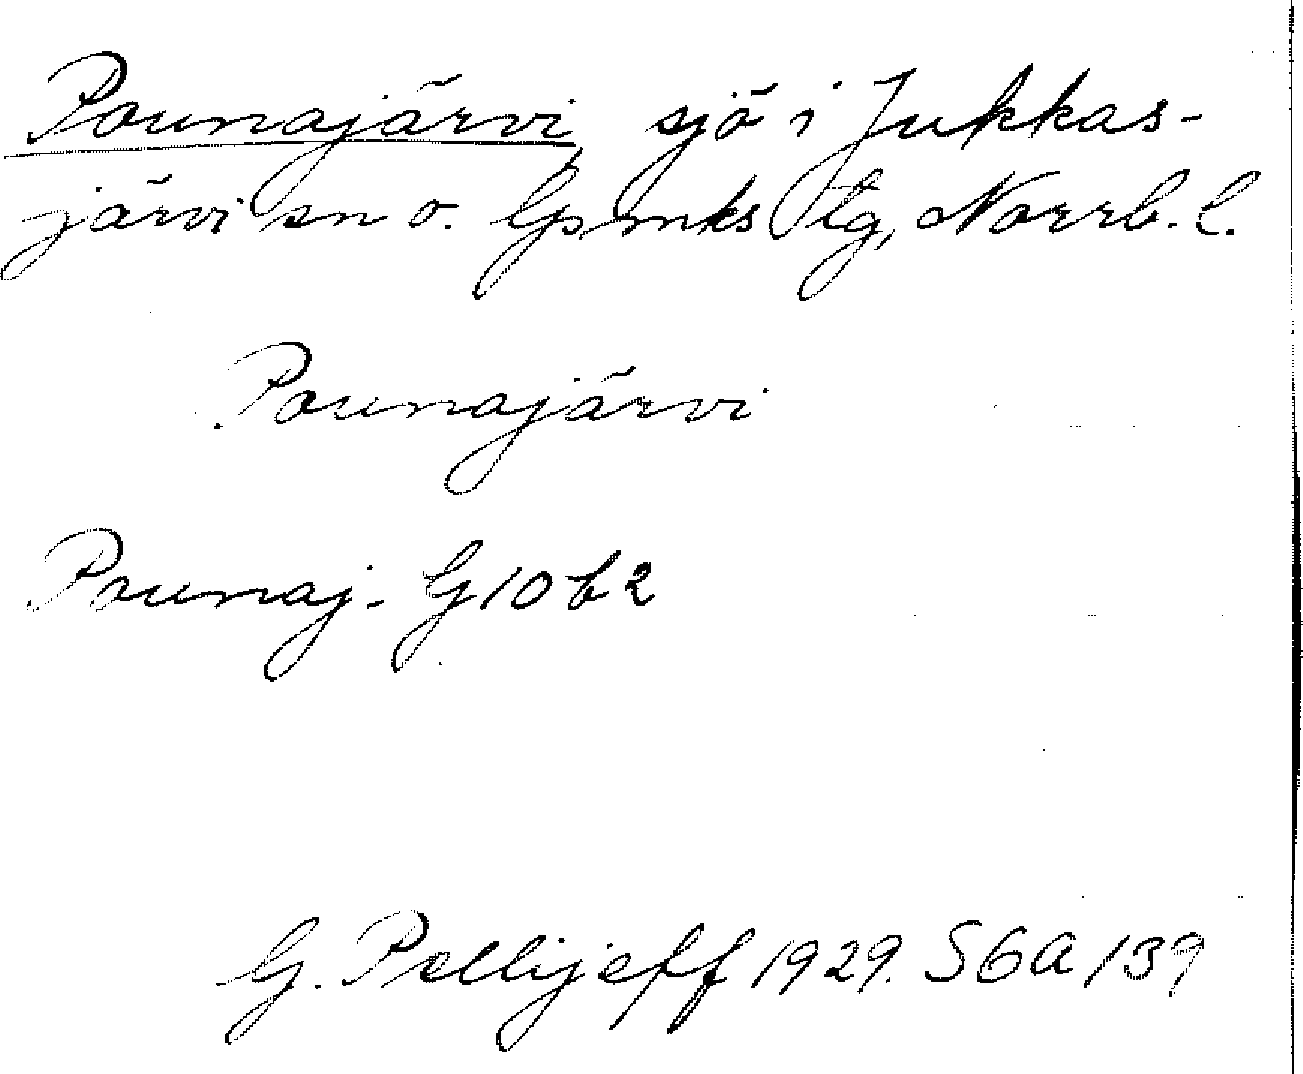 Pounajärvi sjö i Jukkas-
järvi sn o. Lpmks tg, Norrb. l.
Pounajärvi
Pounaj. G10b2
G. Pellijeff 1929. S6a/39